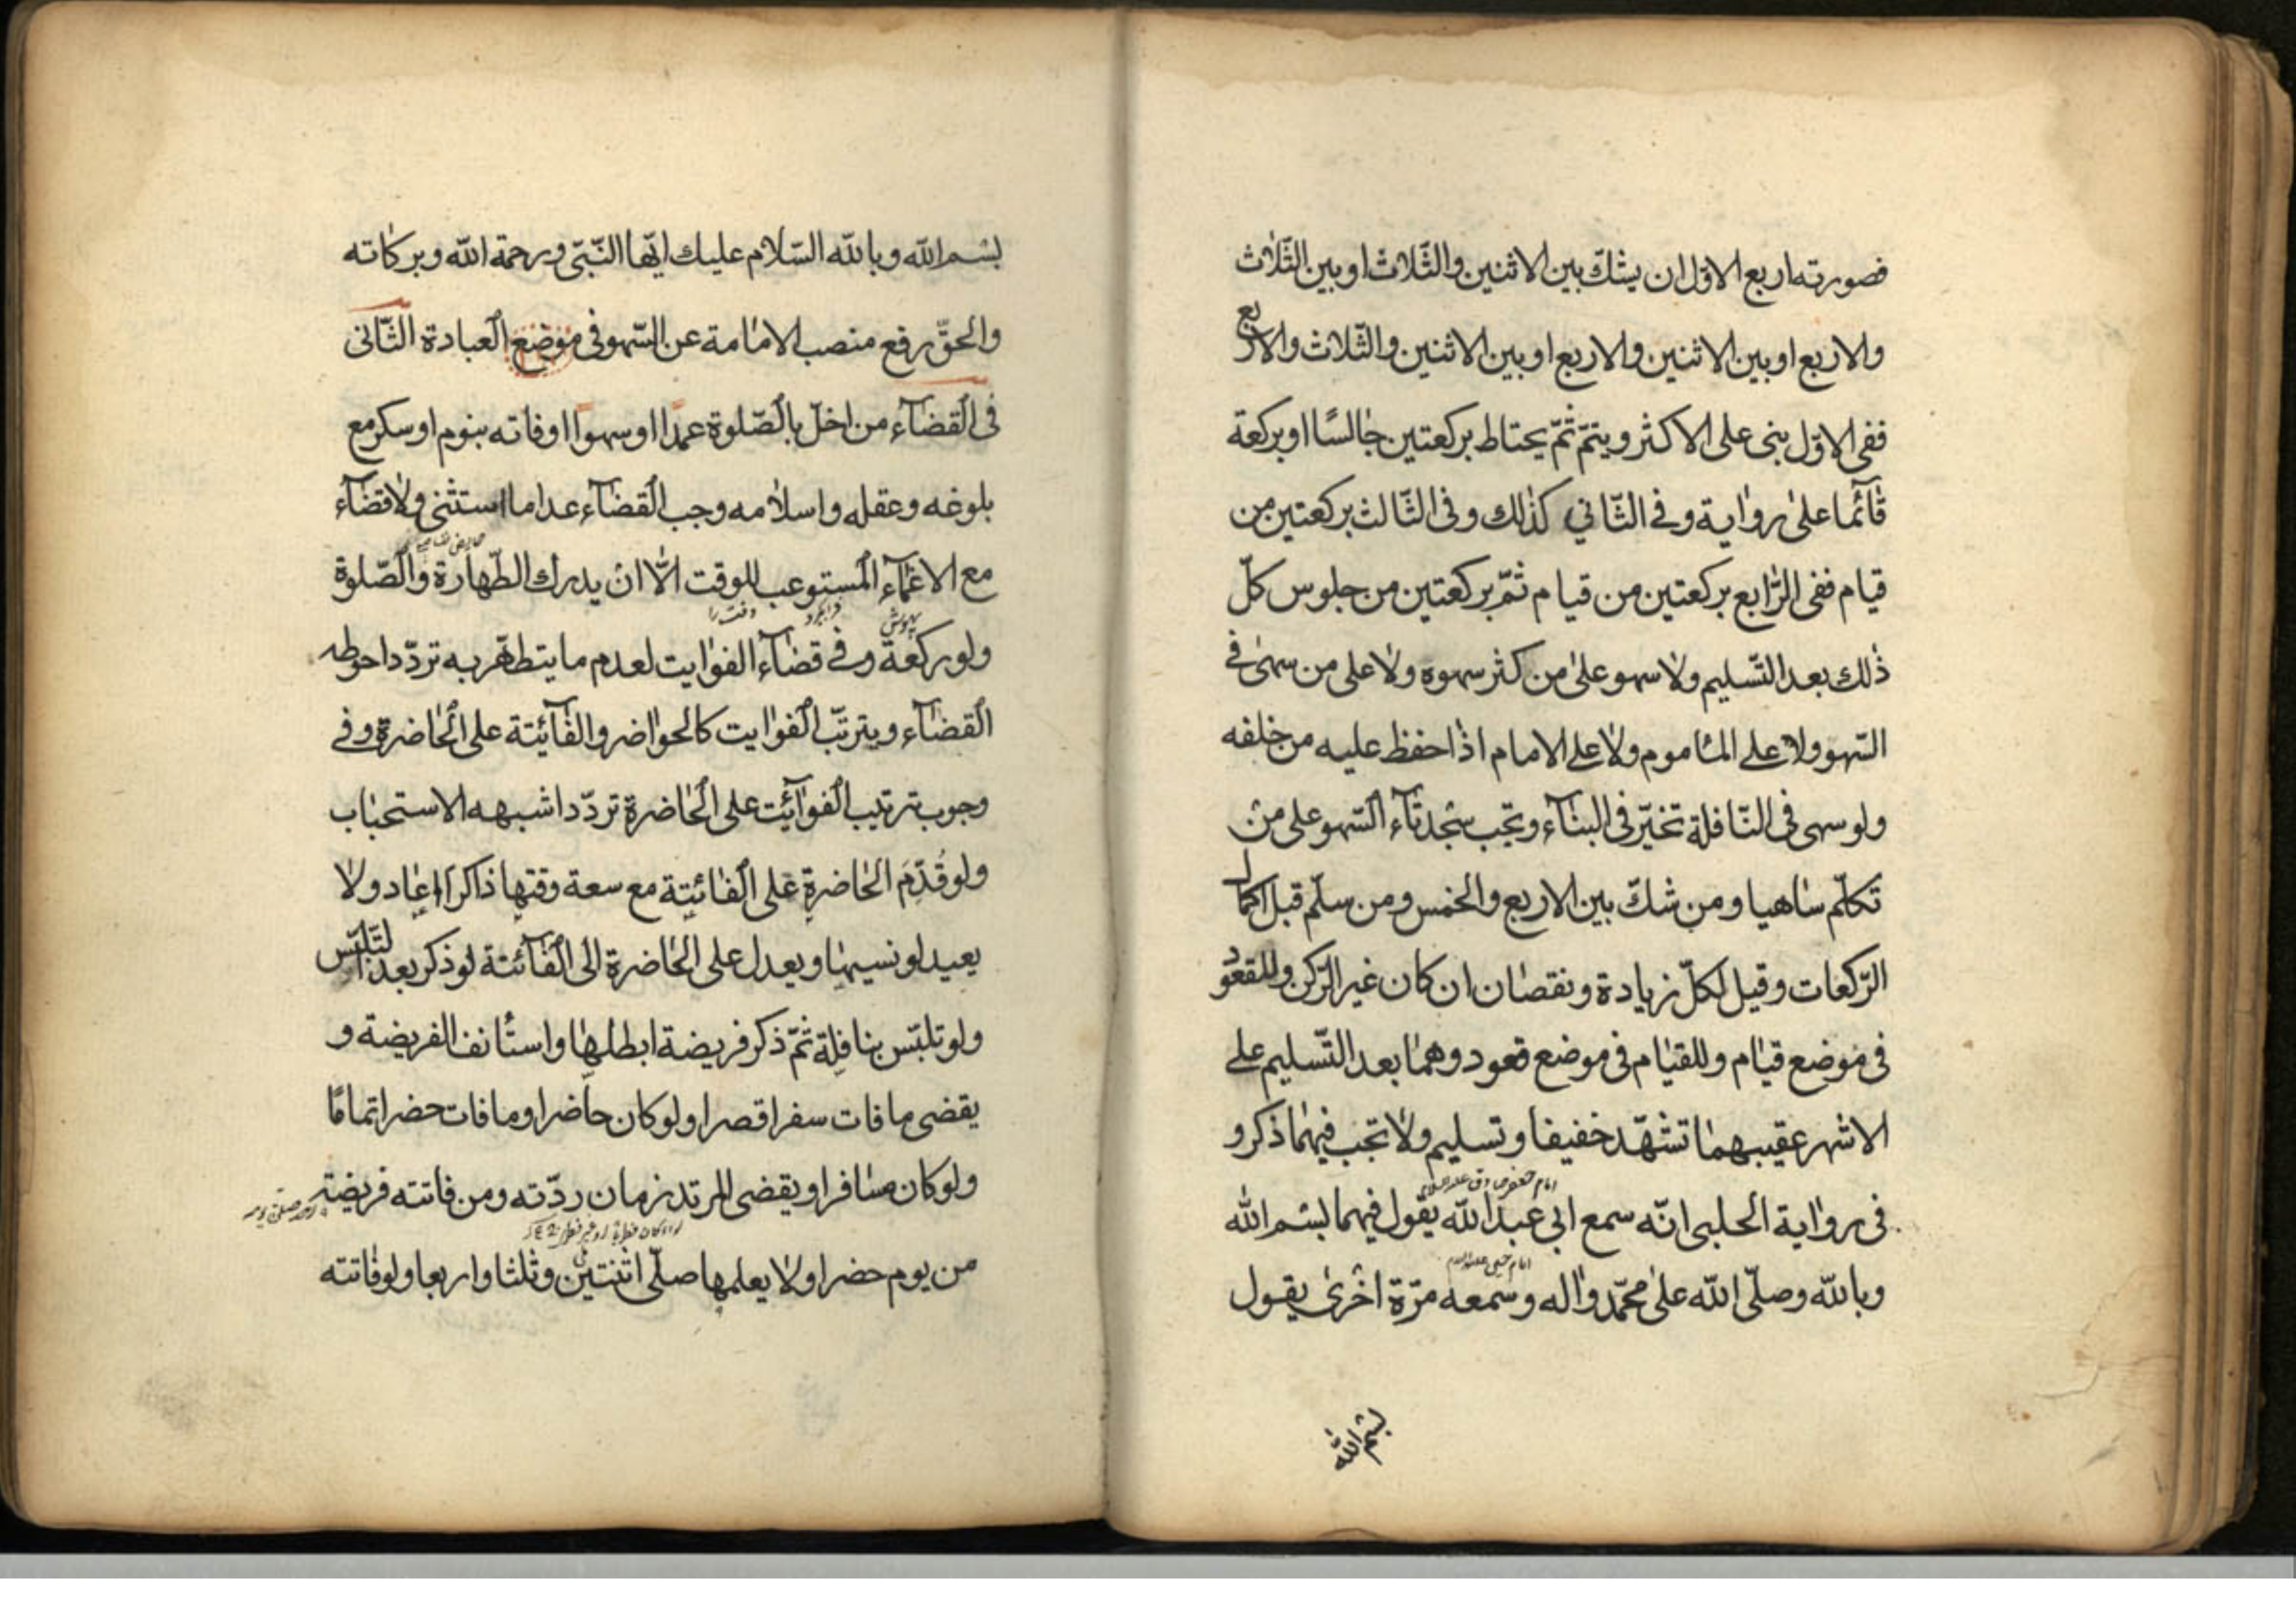 فصورته اربع الاول ان يشكّ بين الاثنين والثّلاث او بين الثّلاث
والاربع او بين الاثنين والاربع او بين الاثنين والثّلاث والاربع
ففى الاوّل بنى على الاكثر ويتمّ ثمّ يحتاط بركعتين جالسًا او بركعة
قائما على رواية وفي الثّاني كذلك وفى الثّالث بركعتين من
قيام ففى الرّابع بركعتين من قيام ثمّ بركعتين من جلوس كلّ
ذلك بعد التّسليم ولا سهو على من كثر سهوه ولا على من سهى في
السّهو ولا على الماموم ولا على الامام اذا حفظ عليه من خلفه
ولو سهى فى النّافلة تخيّر فى البناء وتجب سجدتاء السّهو على من
تكلّم ساهيا ومن شكّ بين الاربع والخمس ومن سلّم قبل اكمال
الرّكعات وقيل لكلّ زيادة ونقصان ان كان غير الرّكن وللقعود
فى موضع قيام وللقيام فى موضع قعود وهما بعد التّسليم على
الاشهر عقيبهما تشهّد خفيفا وتسليم ولا تجب فيهما ذكر و
امام جعفر صادق عليه السلام
فى رواية الحلبى انّه سمع ابى عبد الله يقول فيهما بسم الله
وبالله وصلّى الله على محمّد واله وسمعه مرّة اخرى يقول
بسم الله
بسم الله وبالله السّلام عليك ايّها النّبىّ ورحمة الله وبركاته
والحقّ رفع منصب الامامة عن السّهو فى موضع العبادة الثّانى
فى القضاء من اخلّ بالصّلوة عمدا او سهوا او فاته بنوم او سكر مع
بلوغه وعقله واسلامه وجب القضاء عدا ما استثنى ولا قضاء
مع الاغماء المستوعب للوقت الّا ان يدرك الطّهارة والصّلوة
بيهوش وقت را
ولو ركعة وفي قضاء الفوايت لعدم ما يتطهّر به تردّد احوطه
القضاء ويترتّب الفوايت كالحواضر والفائيتة على الحاضرة وفي
وجوب ترتيب الفوائت على الحاضرة تردّد اشبهه الاستحباب
ولو قُدّمَ الحاضرة على الفائيتة مع سعة وقتها ذاكرا اعاد ولا
يعيد لو نسيها ويعدل على الحاضرة الى الفائتة لو ذكر بعد التّلبّس
ولو تلبّس بنافلة ثمّ ذكر فريضة ابطلها واستأنف الفريضة و
يقضى ما فات سفرا قصرا ولو كان حاضرا وما فات حضرا تمامًا
ولو كان مسافرا ويقضى المرتد زمان ردّته ومن فاتته فريضة
من يوم حضرا ولا يعلمها صلّى اثنتين وثلثا واربعا ولو فاتته